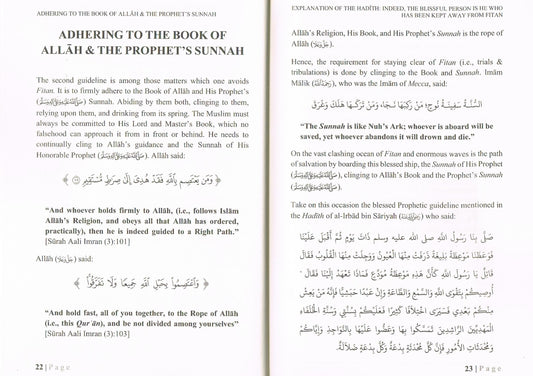 ADHERING TO THE BOOK OF ALLĀH & THE PROPHET'S SUNNAH
ADHERING TO THE BOOK OF
ALLĀH & THE PROPHET'S SUNNAH
The second guideline is among those matters which one avoids
Fitan. It is to firmly adhere to the Book of Allāh and His Prophet's
(ﷺ) Sunnah. Abiding by them both, clinging to them,
relying upon them, and drinking from its spring. The Muslim must
always be committed to His Lord and Master's Book, which no
falsehood can approach it from in front or behind. He needs to
continually cling to Allāh's guidance and the Sunnah of His
Honorable Prophet (ﷺ) Allāh said:
﴿ وَمَن يَعْتَصِم بِٱللَّهِ فَقَدْ هُدِىَ إِلَىٰ صِرَٰطٍ مُّسْتَقِيمٍ ﴾
"And whoever holds firmly to Allāh, (i.e., follows Islām
Allāh's Religion, and obeys all that Allāh has ordered,
practically), then he is indeed guided to a Right Path."
[Sūrah Aali Imran (3):101]
Allāh said:
﴿ وَٱعْتَصِمُوا۟ بِحَبْلِ ٱللَّهِ جَمِيعًا وَلَا تَفَرَّقُوا۟ ﴾
"And hold fast, all of you together, to the Rope of Allāh
(i.e., this Qur'ān), and be not divided among yourselves"
[Sūrah Aali Imran (3):103]
22 | Page
EXPLANATION OF THE HADĪTH: INDEED, THE BLISSFUL PERSON IS HE WHO
HAS BEEN KEPT AWAY FROM FITAN
Allāh's Religion, His Book, and His Prophet's Sunnah is the rope of
Allāh
Hence, the requirement for staying clear of Fitan (i.e., trials &
tribulations) is done by clinging to the Book and Sunnah. Imām
Mālik, who was the Imām of Mecca, said:
السُّنَّةُ سَفِينَةُ نُوحٍ، مَنْ رَكِبَهَا نَجَا، وَمَنْ تَرَكَهَا هَلَكَ وَغَرَقَ
"The Sunnah is like Nuh's Ark; whoever is aboard will be
saved, yet whoever abandons it will drown and die."
On the vast clashing ocean of Fitan and enormous waves is the path
of salvation by boarding this blessed ship, the Sunnah of His Prophet
(ﷺ), clinging to Allāh's Book and the Prophet's Sunnah
(ﷺ).
Take on this occasion the blessed Prophetic guideline mentioned in
the Hadīth of al-Irbād bin Sāriyah who said:
صَلَّى بِنَا رَسُولُ اللَّهِ صلى الله عليه وسلم ذَاتَ يَوْمٍ ثُمَّ أَقْبَلَ عَلَيْنَا
فَوَعَظَنَا مَوْعِظَةً بَلِيغَةً ذَرَفَتْ مِنْهَا الْعُيُونُ وَوَجِلَتْ مِنْهَا الْقُلُوبُ فَقَالَ
قَائِلٌ يَا رَسُولَ اللَّهِ كَأَنَّ هَذِهِ مَوْعِظَةُ مُوَدِّعٍ فَمَاذَا تَعْهَدُ إِلَيْنَا فَقَالَ
أُوصِيكُمْ بِتَقْوَى اللَّهِ وَالسَّمْعِ وَالطَّاعَةِ وَإِنْ عَبْدًا حَبَشِيًّا فَإِنَّهُ مَنْ يَعِشْ
مِنْكُمْ بَعْدِي فَسَيَرَى اخْتِلَافًا كَثِيرًا فَعَلَيْكُمْ بِسُنَّتِي وَسُنَّةِ الْخُلَفَاءِ
الْمَهْدِيِّينَ الرَّاشِدِينَ تَمَسَّكُوا بِهَا وَعَضُّوا عَلَيْهَا بِالنَّوَاجِذِ وَإِيَّاكُمْ
وَمُحْدَثَاتِ الْأُمُورِ فَإِنَّ كُلَّ مُحْدَثَةٍ بِدْعَةٌ وَكُلَّ بِدْعَةٍ ضَلَالَةٌ.
23 | Page